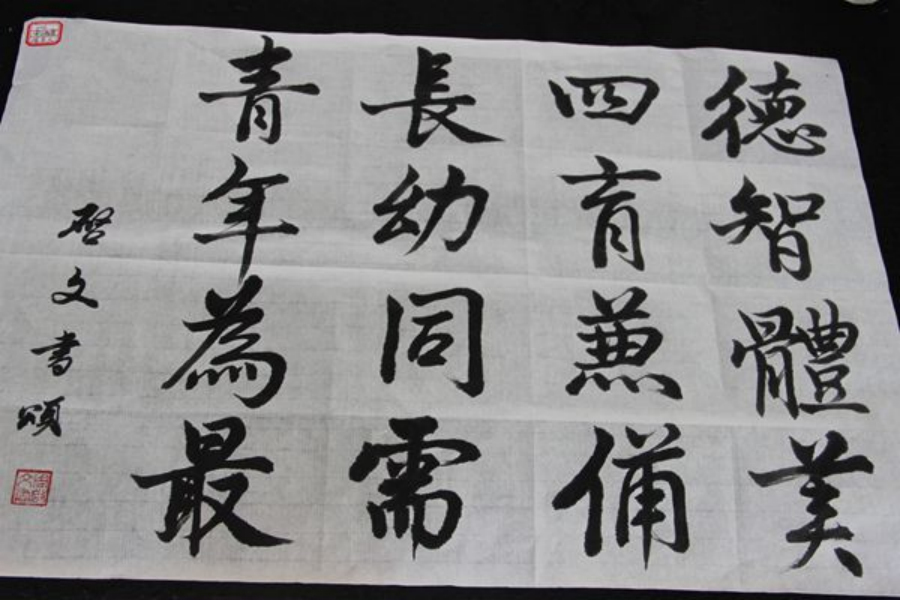 德智體美
四育兼備
長幼同需
青年為最
啓文書頌